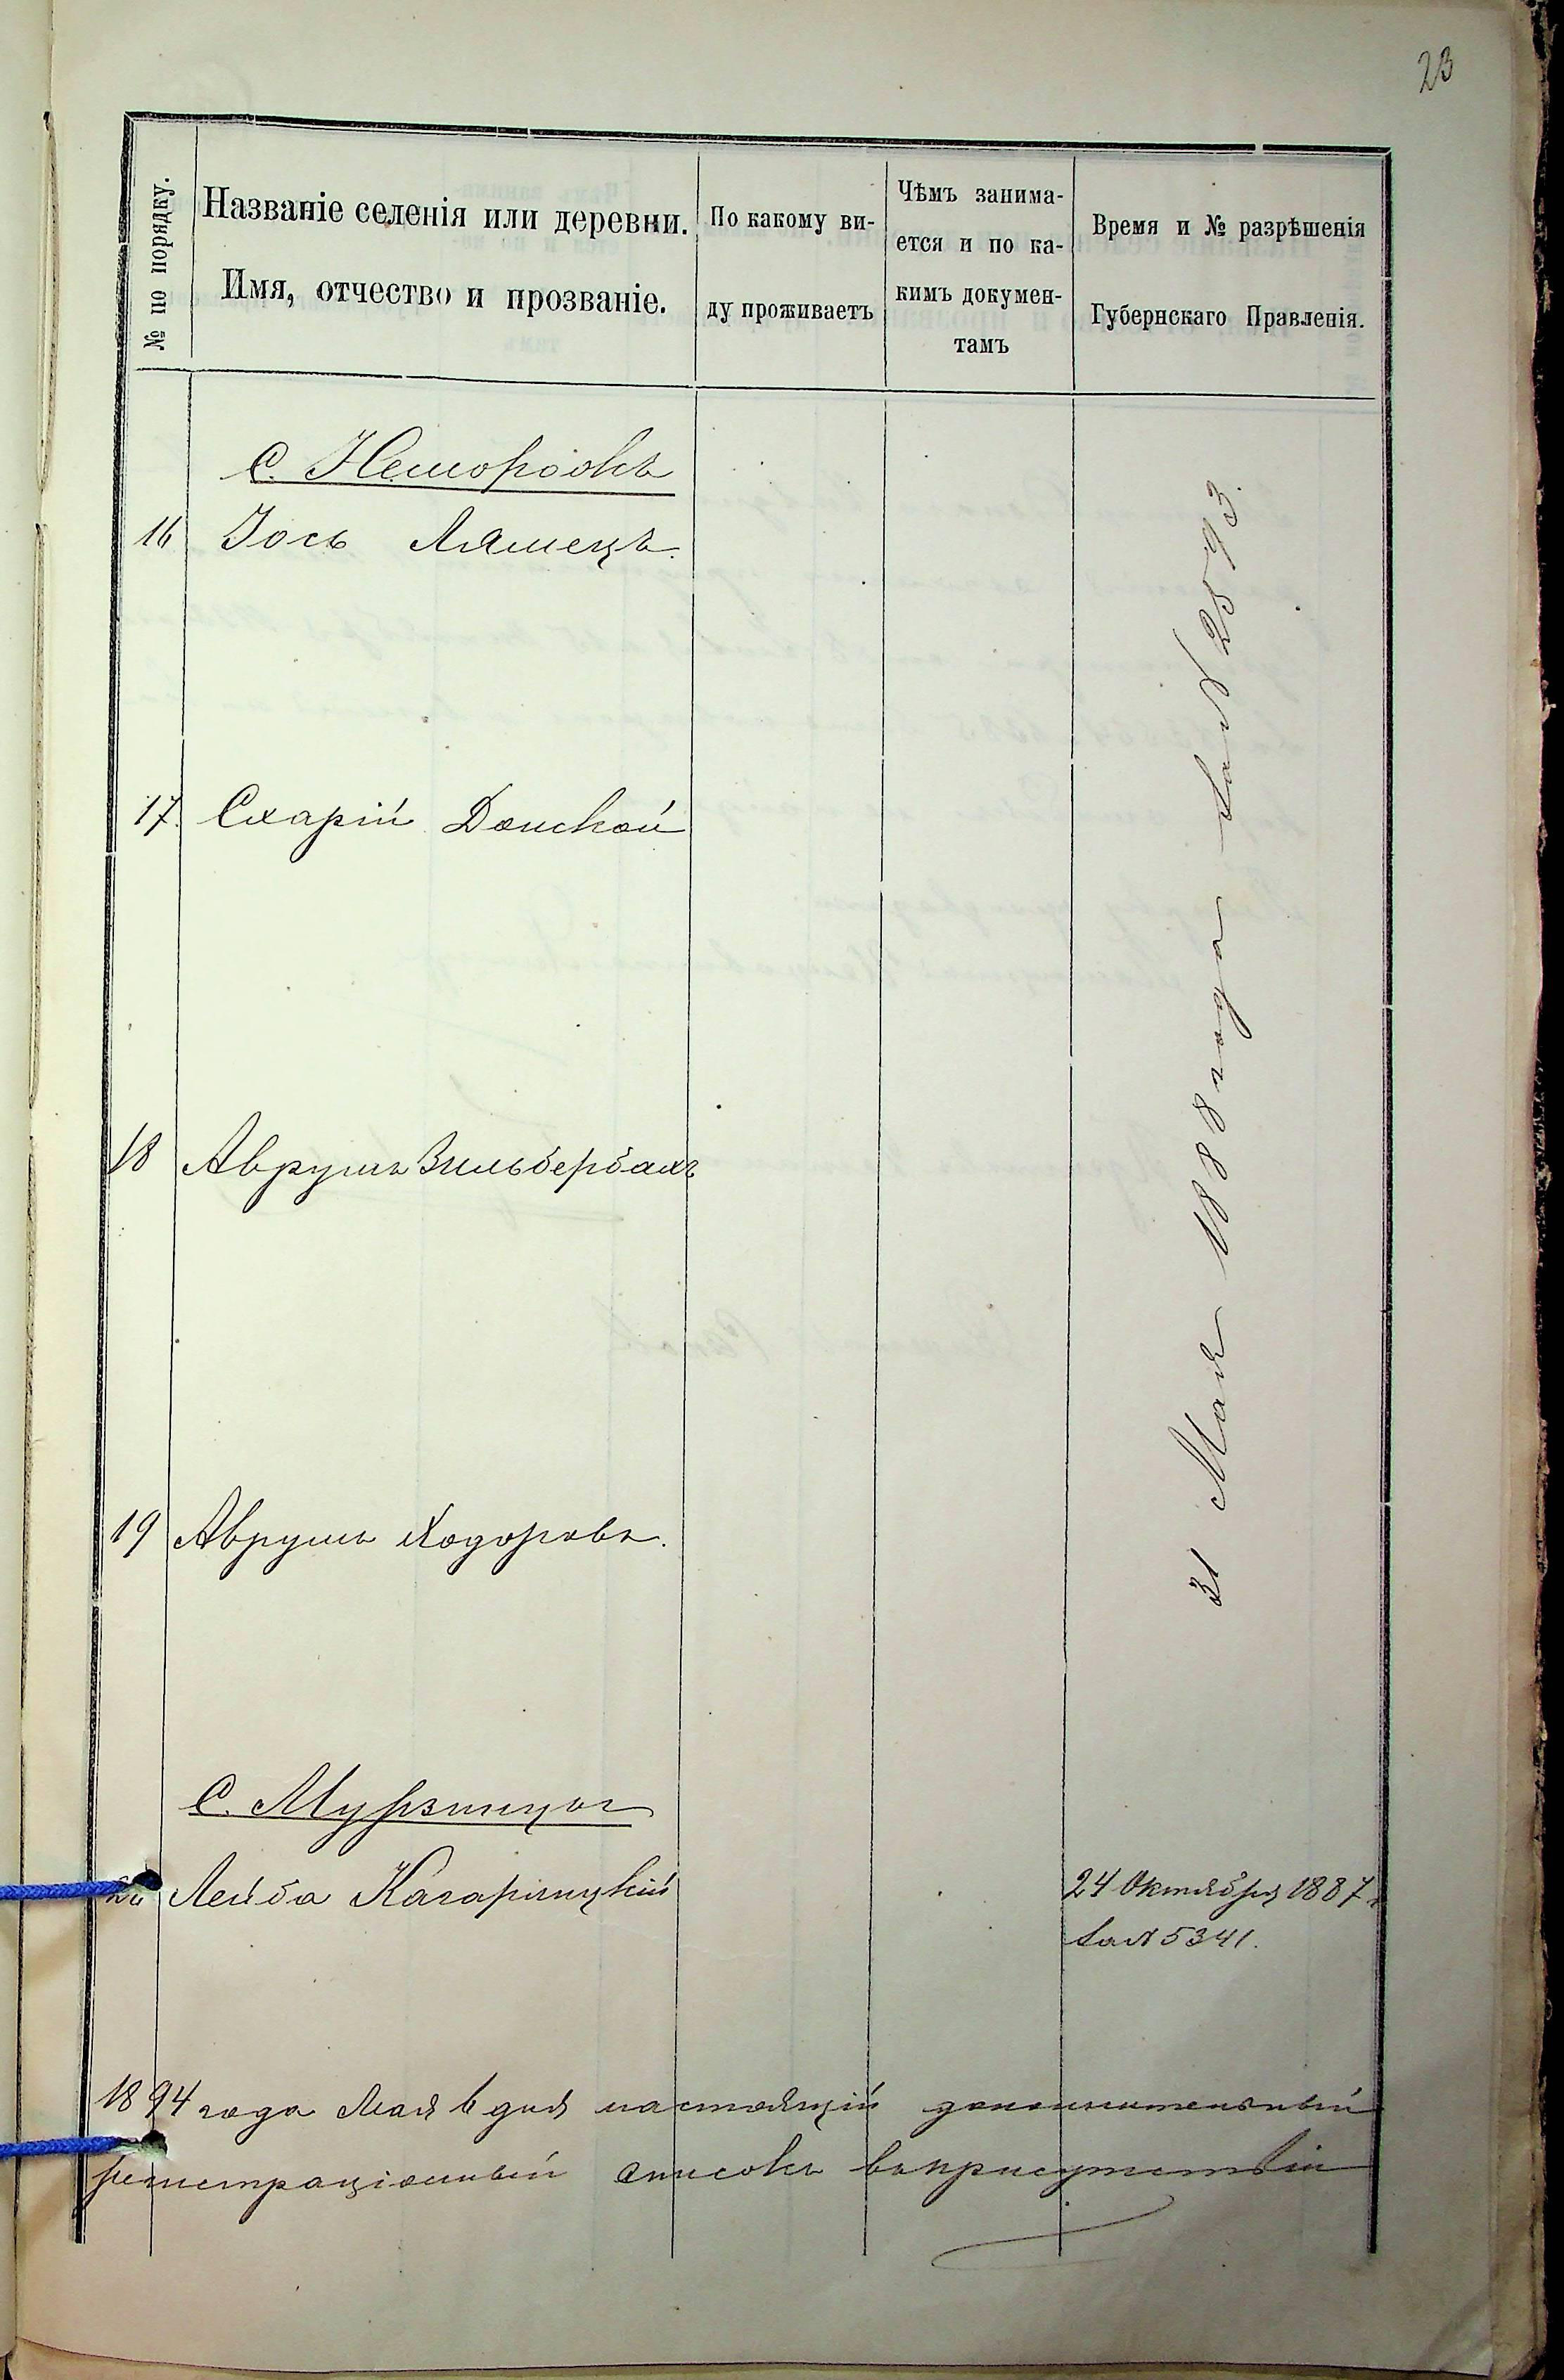 23
№ по порядку.
Названіе селенія или деревни.
Имя, отчество и прозваніе.
По какому ви-
ду проживаетъ
Чѣмъ занима-
ется и по ка-
кимъ докумен-
тамъ
Время и № разрѣшенія
Губернскаго Правленія.
С. Неморожъ
16 Іось Ляшецъ.
17. Схарій Донской
18 Аврумъ Зильбербахъ
19 Аврумъ Ходоровъ.
31 Мая 1888 года за № 2593.
С. Мурзинцы
20 Лейба Кагарлицкій
24 Октября 1887 г.
за № 5341.
1894 года Мая 6 дня настоящій дополнительный
регистраціонный списокъ въ присутствіи